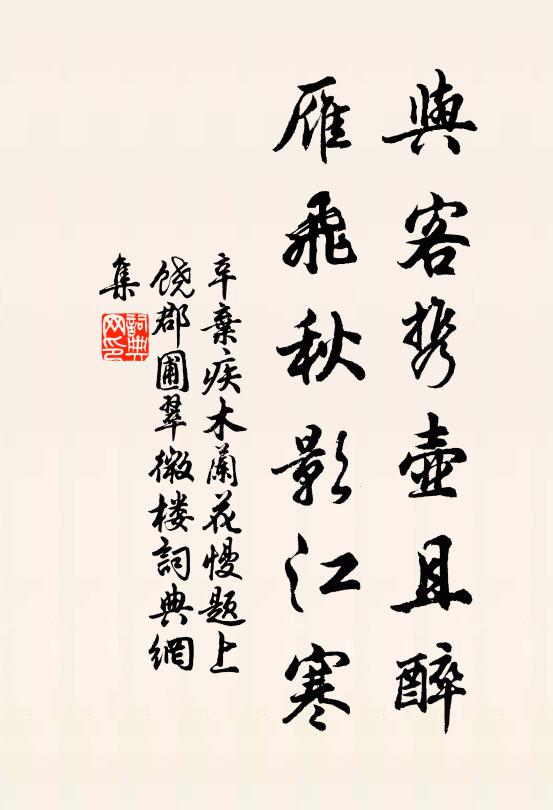 與客携壺且醉
雁飛秋影江寒
辛棄疾木蘭花慢题上
饒郡圃翠微楼詞典網
集
詞典
网印